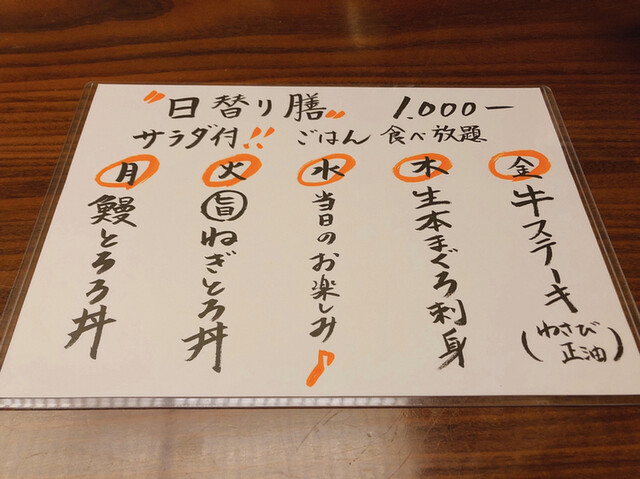 "日替り膳" 1.000ー
サラダ付!! ごはん 食べ放題
月 鰻とろろ丼
火 旨ねぎとろ丼
水 当日のお楽しみ♪
木 生本まぐろ刺身
金 牛ステーキ
(わさび正油)